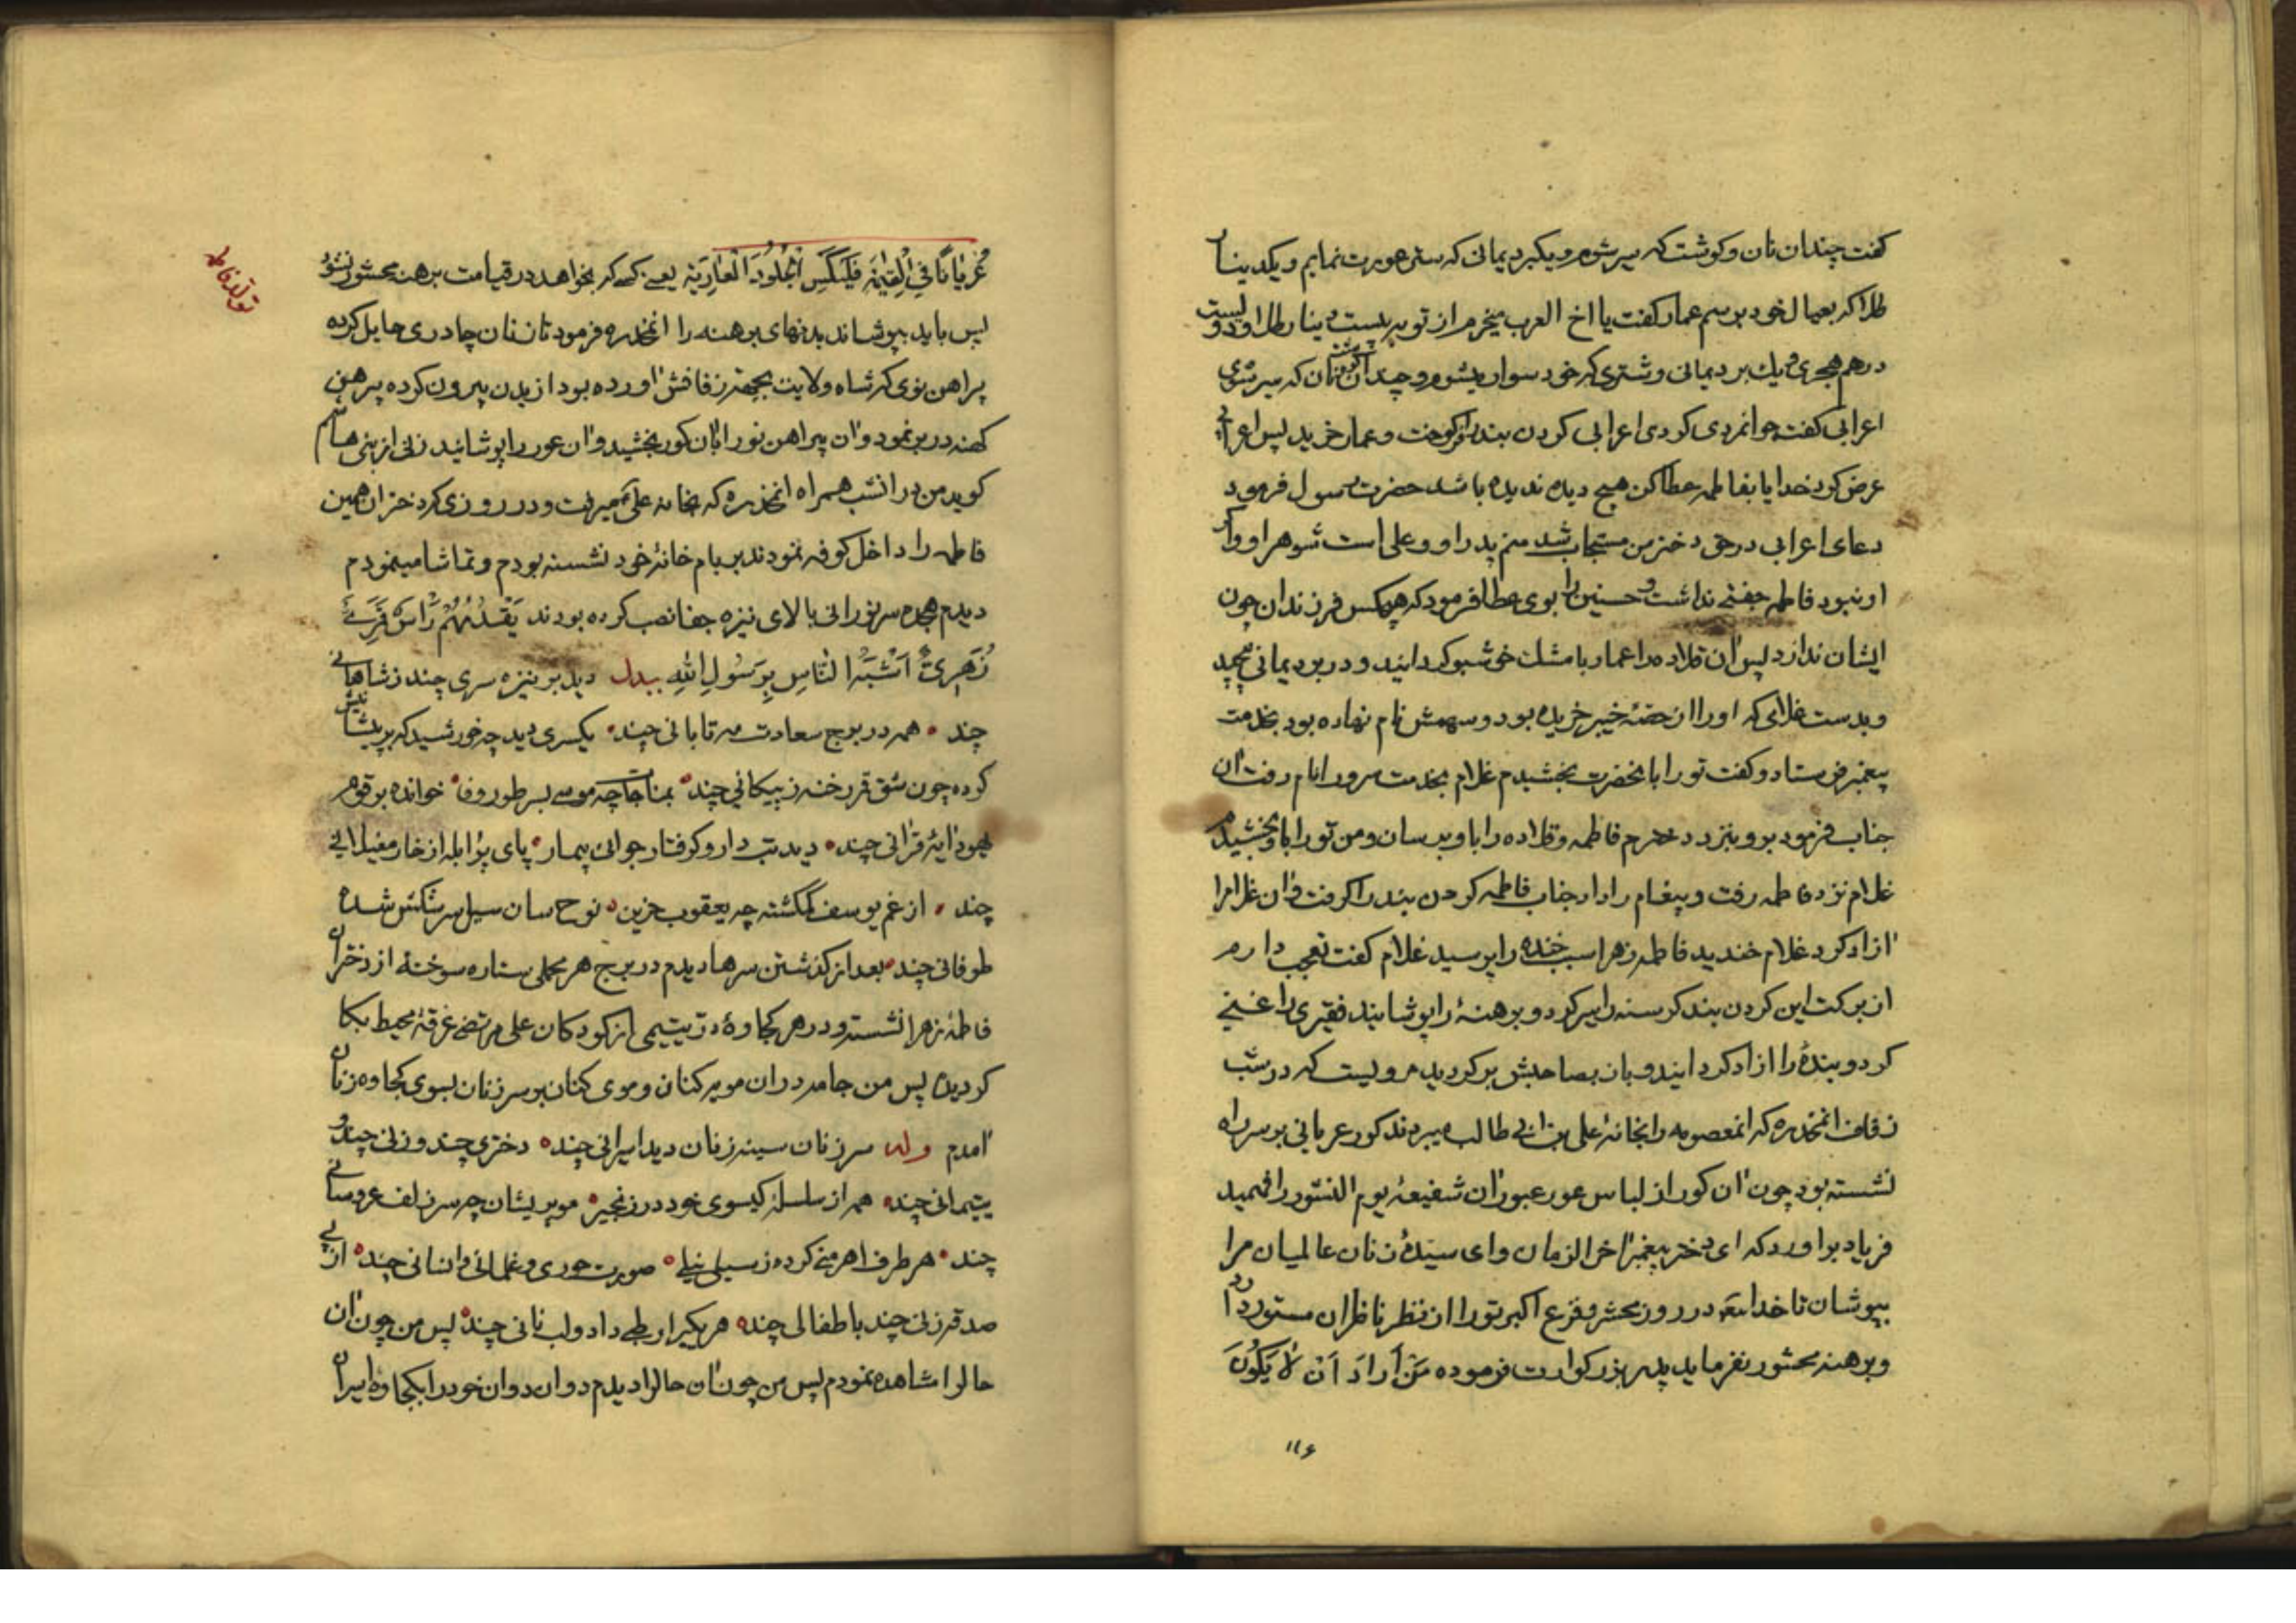 گفت چندان نان و گوشت که سیر شوم و یکبرد یمانی که ستر عورت نمایم و یکدینار
طلا که بعیال خود برسم عمار گفت یا اخ العرب میخرم از تو به بیست دینار طلا و دویست
درهم هجری و یک برد یمانی و شتری که خود سوار میشوم و چندان گوشت و نان که سیر شوی
اعرابی گفت جوانمردی کردی اعرابی گردن بند را فروخت و عمار خرید پس اعرابی
عرض کرد خدایا بفاطمه عطا کن هیچ دیده ندیده باشد حضرت رسول فرمود
دعای اعرابی در حق دختر من مستجاب شد منم پدر او و علی است شوهر او و اگر
او نبود فاطمه جفتی نداشت و حسنین را بوی عطا فرمود که هیچکس فرزندان چون
ایشان ندارد پس آن قلاده را عمار با مشک خوشبو گردانید و در برد یمانی پیچید
و بدست غلامی که او را از حصهٔ خیبر خریده بود و سهمش نام نهاده بود بخدمت
پیغمبر فرستاد و گفت تو را بانحضرت بخشیدم غلام بخدمت سرور انام رفت آن
جناب فرمود برو بنزد دخترم فاطمه و قلاده را باو برسان و من تو را باو بخشیدم
غلام نزد فاطمه رفت و پیغام را داد جناب فاطمه گردن بند را گرفت و آن غلام را
آزاد کرد غلام خندید فاطمه زهرا سبب خنده را پرسید غلام گفت تعجب دارم
از برکت این گردن بند گرسنه را سیر کرد و برهنهٔ را پوشانید فقیری را غنی
کرد و بندهٔ را ازاد گردانید و باز بصاحبش برگردید مرویست که در شب
زفاف انمخدره که انمعصومه را بخانهٔ علی بن ابی طالب میبردند کور عریانی بر سر راه
نشسته بود چون آن کور از لباس عور عبور آن شفیعهٔ یوم النشور را فهمید
فریاد براورد که ای دختر پیغمبر آخر الزمان و ای سیدهٔ زنان عالمیان مرا
بپوشان تا خدا تعه در روز محشر و فزع اکبر تو را از نظر ناظران مستور دارد
و برهنه محشور نفرماید پدر بزرگوارت فرموده مَن اَرادَ اَن لا یَکُونَ
۱۱۶
عُریاناً فِی القِیٰمَةِ فَلیَکسِ الجُلُودَ العٰارِیَةِ یعنی کسی که بخواهد در قیامت برهنه محشور نشود
پس باید بپوشاند بدنهای برهنه را انمخدره فرمود تا زنان چادری حایل کرده
پیراهن نوی که شاه ولایت بجهة زفافش آورده بود از بدن بیرون کرده پیرهن
کهنه در بر نمود و آن پیراهن نو را بان کور بخشید و آن عور را پوشانید زنی از بنی هاشم
گوید من در انشب همراه انمخدره که بخانه علی میرفت و در روزی که دختران همین
فاطمه را داخل کوفه نمودند بر بام خانهٔ خود نشسته بودم و تماشا مینمودم
دیدم هجده سر نورانی بالای نیزه جفا نصب کرده بودند یَقدُمُهُم رَأسٌ قَمَرِیٌّ
زُهَرِیٌّ اَشبَهُ النّاسِ بِرَسُولِ اللّهِ بیدل دید بر نیزه سری چند ز شاهانی
چند • همه در برج سعادت مه تابانی چند • یکسری دید چه خورشید که بر پیشانیش
کرده چون شق قمر رخنه ز پیکانی چند • بمناجات چه موسی بسر طور وفا • خوانده بر قوم
یهود آیهٔ قرآنی چند • دید تب دار و گرفتار جوانی بیمار • پای پر آبله از خار مغیلانی
چند • از غم یوسف گمگشته چه یعقوب حزین • نوح سان سیل سرشگش شده
طوفانی چند • بعد از گذشتن سرها دیدم در برج هر محملی ستاره سوختهٔ از دختران
فاطمهٔ زهرا نشسته و در هر کجاوهٔ در یتیمی از کودکان علی مرتضی غرقهٔ محیط بکا
گردیده پس من جامه دران مویه کنان و موی کنان بر سر زنان بسوی کجاوه زنان
آمدم وله سر زنان سینه زنان دید اسیرانی چند • دختری چند و زنی چند و
یتیمانی چند • همه از سلسلهٔ گیسوی خود در زنجیر • مو پریشان چه سر زلف عروسانی
چند • هر طرف اهرمنی کرده ز سیلی نیلی • صورت حوری و غلمانی و انسانی چند • از پی
صدقه زنی چند باطفالی چند • هر یکی را رطبی داد و لب نانی چند • پس من چون آن
حالرا مشاهده نمودم پس من چون آن حالرا دیدم دوان دوان خود را بکجاوه اسیران
تولد فاطمه